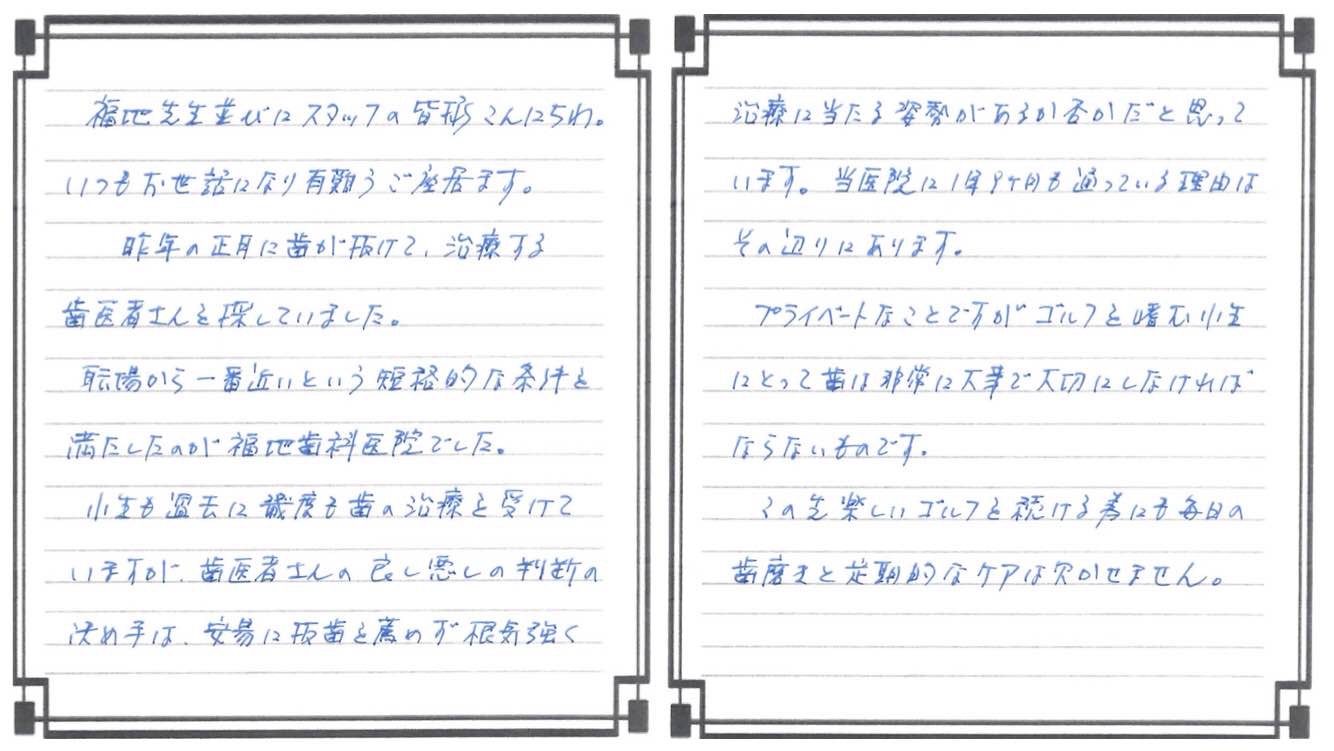 福地先生並びにスタッフの皆様こんにちわ。
いつもお世話になり有難うご座居ます。
昨年の正月に歯が抜けて、治療する
歯医者さんを探していました。
職場から一番近いという短絡的な条件を
満たしたのが福地歯科医院でした。
小生も過去に幾度も歯の治療を受けて
いますが、歯医者さんの良し悪しの判断の
決め手は、安易に抜歯を薦めず根気強く
治療に当たる姿勢があるか否かだと思って
います。当医院に1年9ケ月も通っている理由は
その辺りにあります。
プライベートなことですがゴルフを嗜む小生
にとって歯は非常に大事で大切にしなければ
ならないものです。
この先楽しいゴルフを続ける為にも毎日の
歯磨きと定期的なケアは欠かせません。